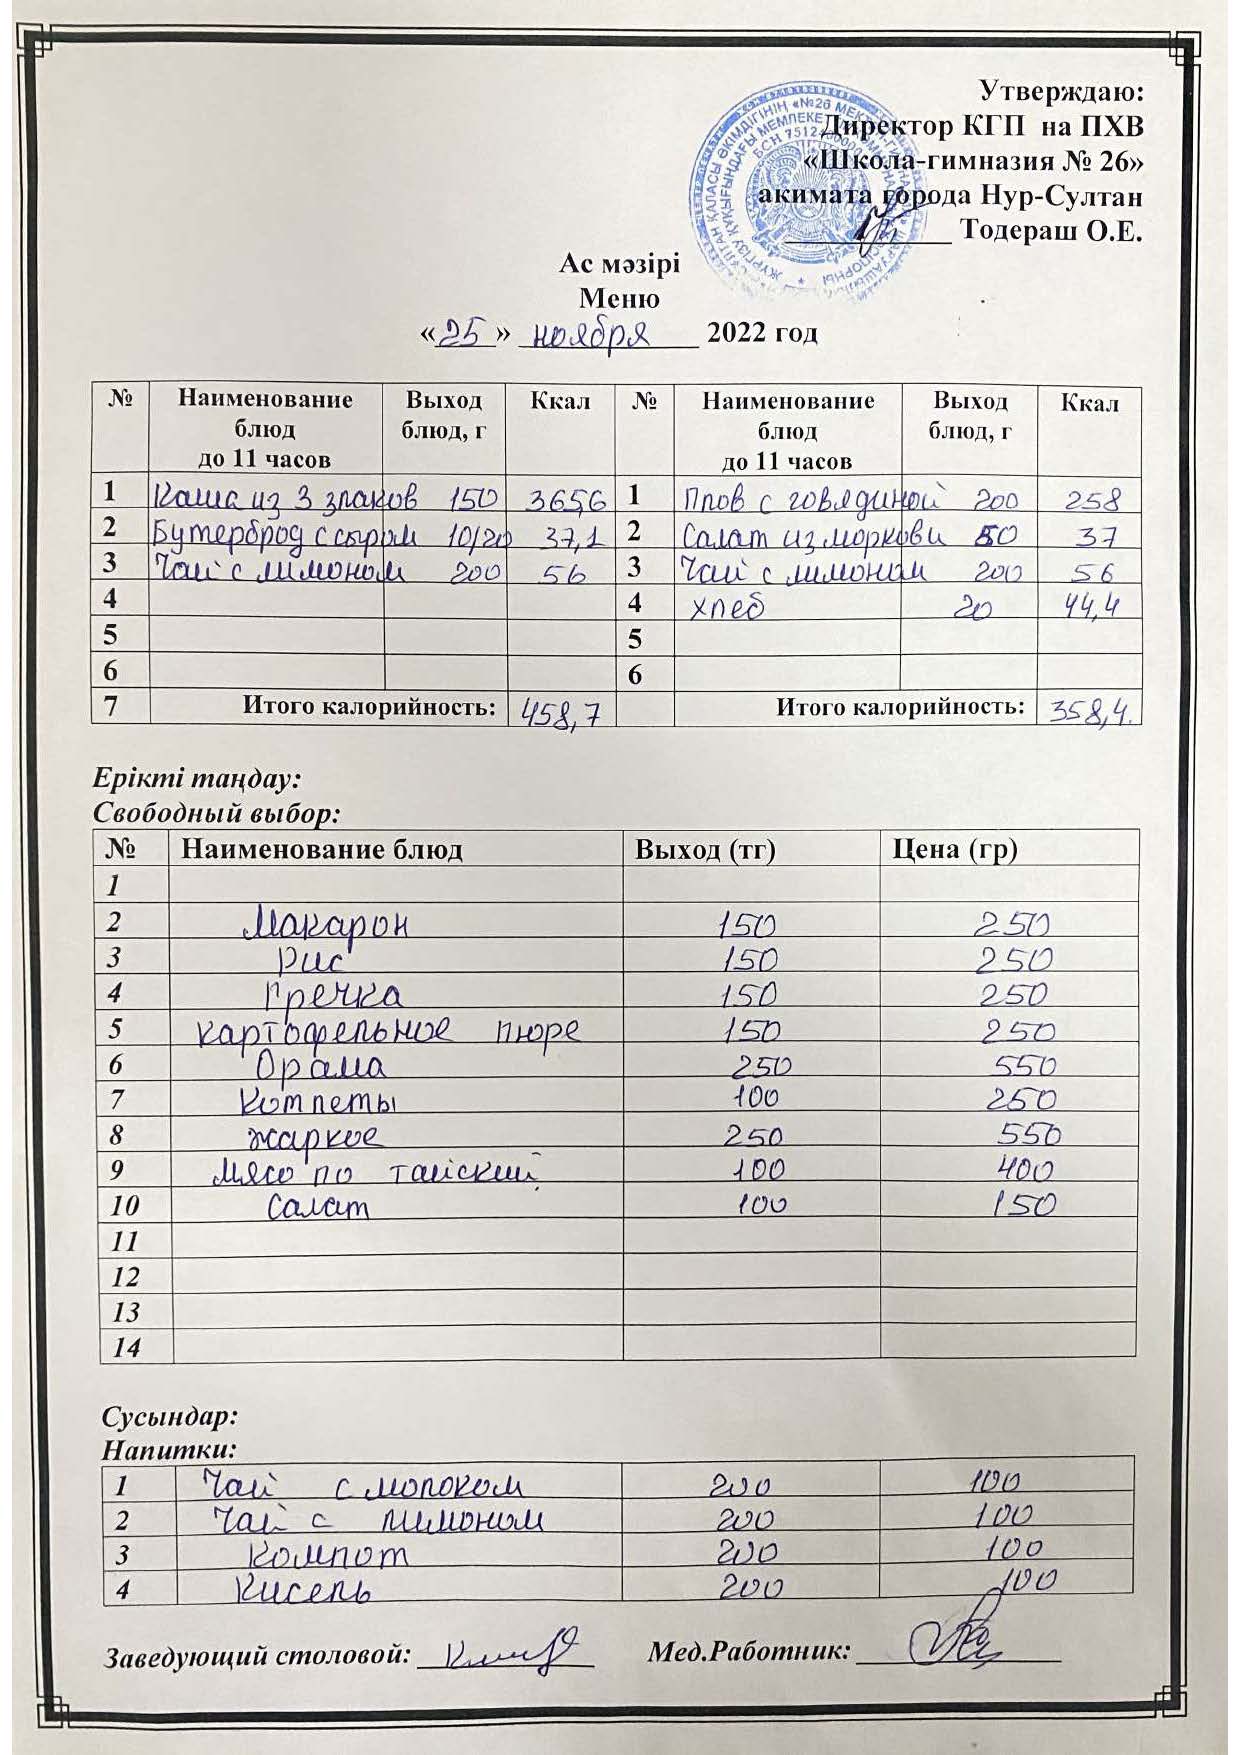 Утверждаю:
Директор КГП на ПХВ
«Школа-гимназия № 26»
акимата города Нур-Султан
Тодераш О.Е.
Ас мәзірі
Меню
«25» ноября 2022 год
№ Наименование блюд до 11 часов Выход блюд, г Ккал № Наименование блюд до 11 часов Выход блюд, г Ккал
1 Каша из 3 злаков 150 365,6 1 Плов с говядиной 200 258
2 Бутерброд с сыром 10/20 37,1 2 Салат из моркови 50 37
3 Чай с лимоном 200 56 3 Чай с лимоном 200 56
4 4 хлеб 20 44,4
5 5
6 6
7 Итого калорийность: 458,7 Итого калорийность: 358,4.
Ерікті таңдау:
Свободный выбор:
№ Наименование блюд Выход (тг) Цена (гр)
1
2 Макарон 150 250
3 Рис 150 250
4 Гречка 150 250
5 картофельное пюре 150 250
6 Орама 250 550
7 Котлеты 100 250
8 жаркое 250 550
9 мясо по тайский 100 400
10 Салат 100 150
11
12
13
14
Сусындар:
Напитки:
1 Чай с молоком 200 100
2 Чай с лимоном 200 100
3 Компот 200 100
4 Кисель 200 100
Заведующий столовой: Мед.Работник: